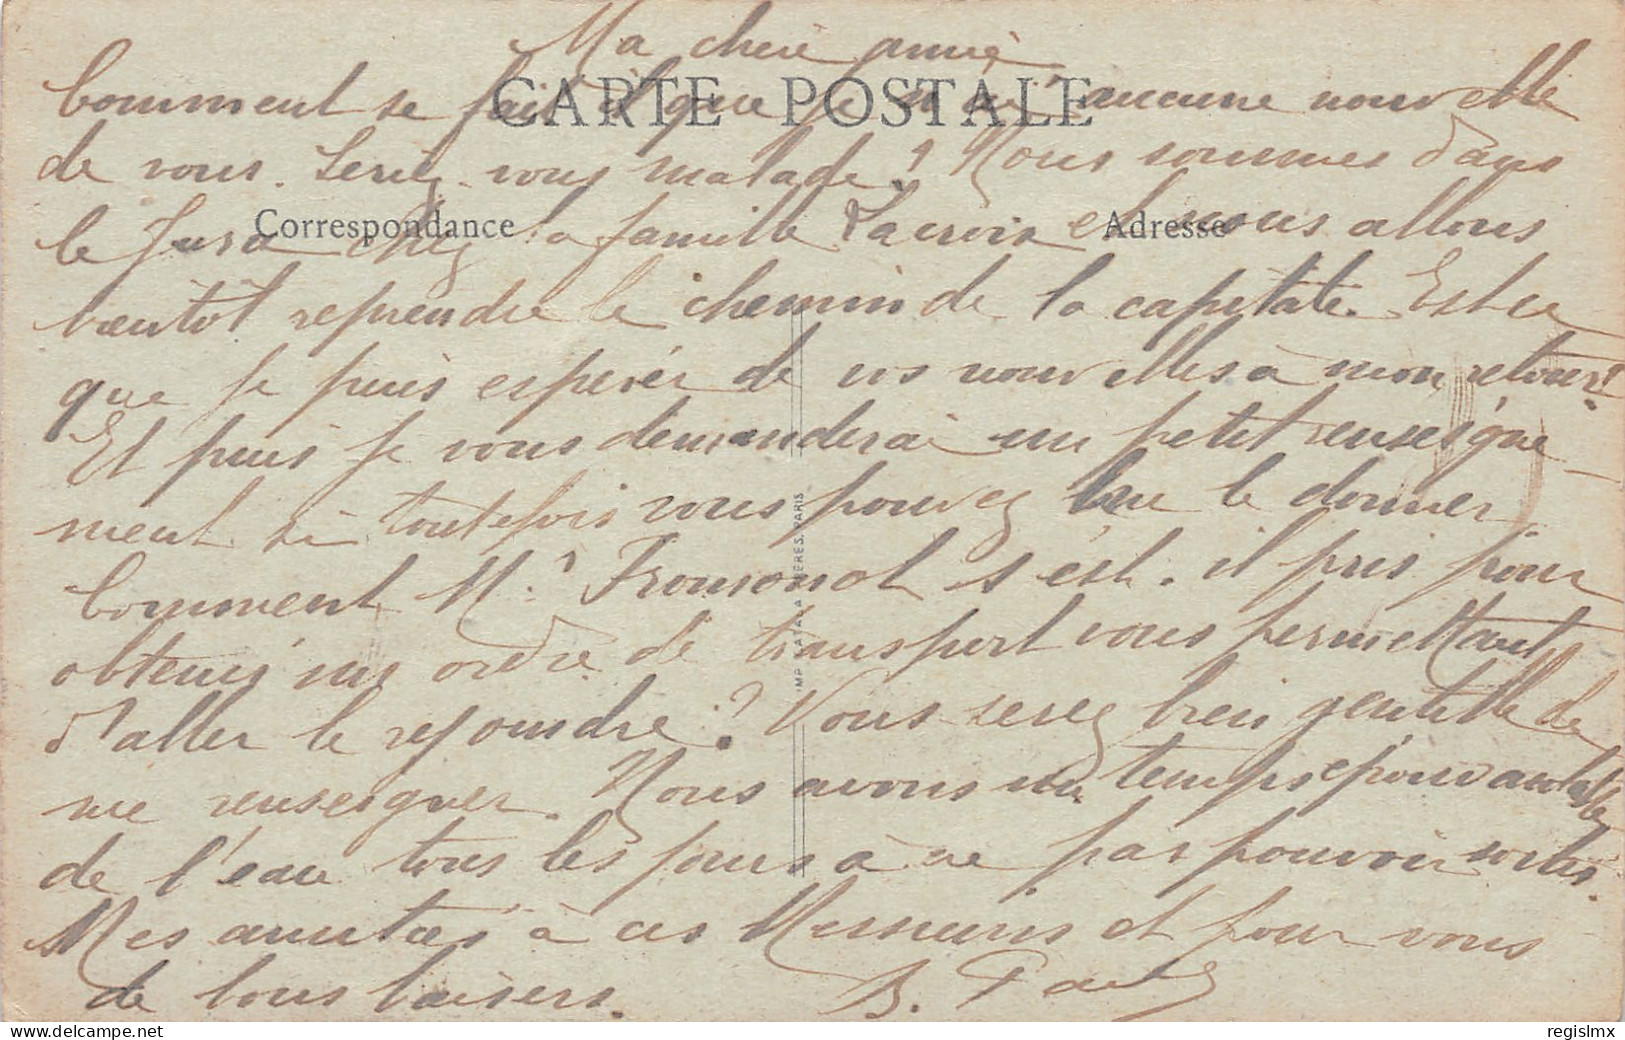 Ma chère amie
CARTE POSTALE
Comment se fait il que je n'ai aucune nouvelle
de vous. Seriez-vous malade? Nous sommes dans
Correspondance
Adresse
le Jura chez la famille Lacroix et nous allons
bientôt reprendre le chemin de la capitale. Est ce
que je puis espérer de vos nouvelles à mon retour?
Et puis je vous demanderai un petit renseigne-
ment si toutefois vous pouvez me le donner.
Comment Mr s'est-il pris pour
obtenir un ordre de transport vous permettant
d'aller le rejoindre? Vous serez bien gentille de
me renseigner. Nous avons un temps épouvantable
de l'eau tous les jours à ne pas pouvoir sortir.
Mes amitiés à ces Messieurs et pour vous
de bons baisers. B.
IMP. CATALA FRERES, PARIS
delcampe.net
regislmx